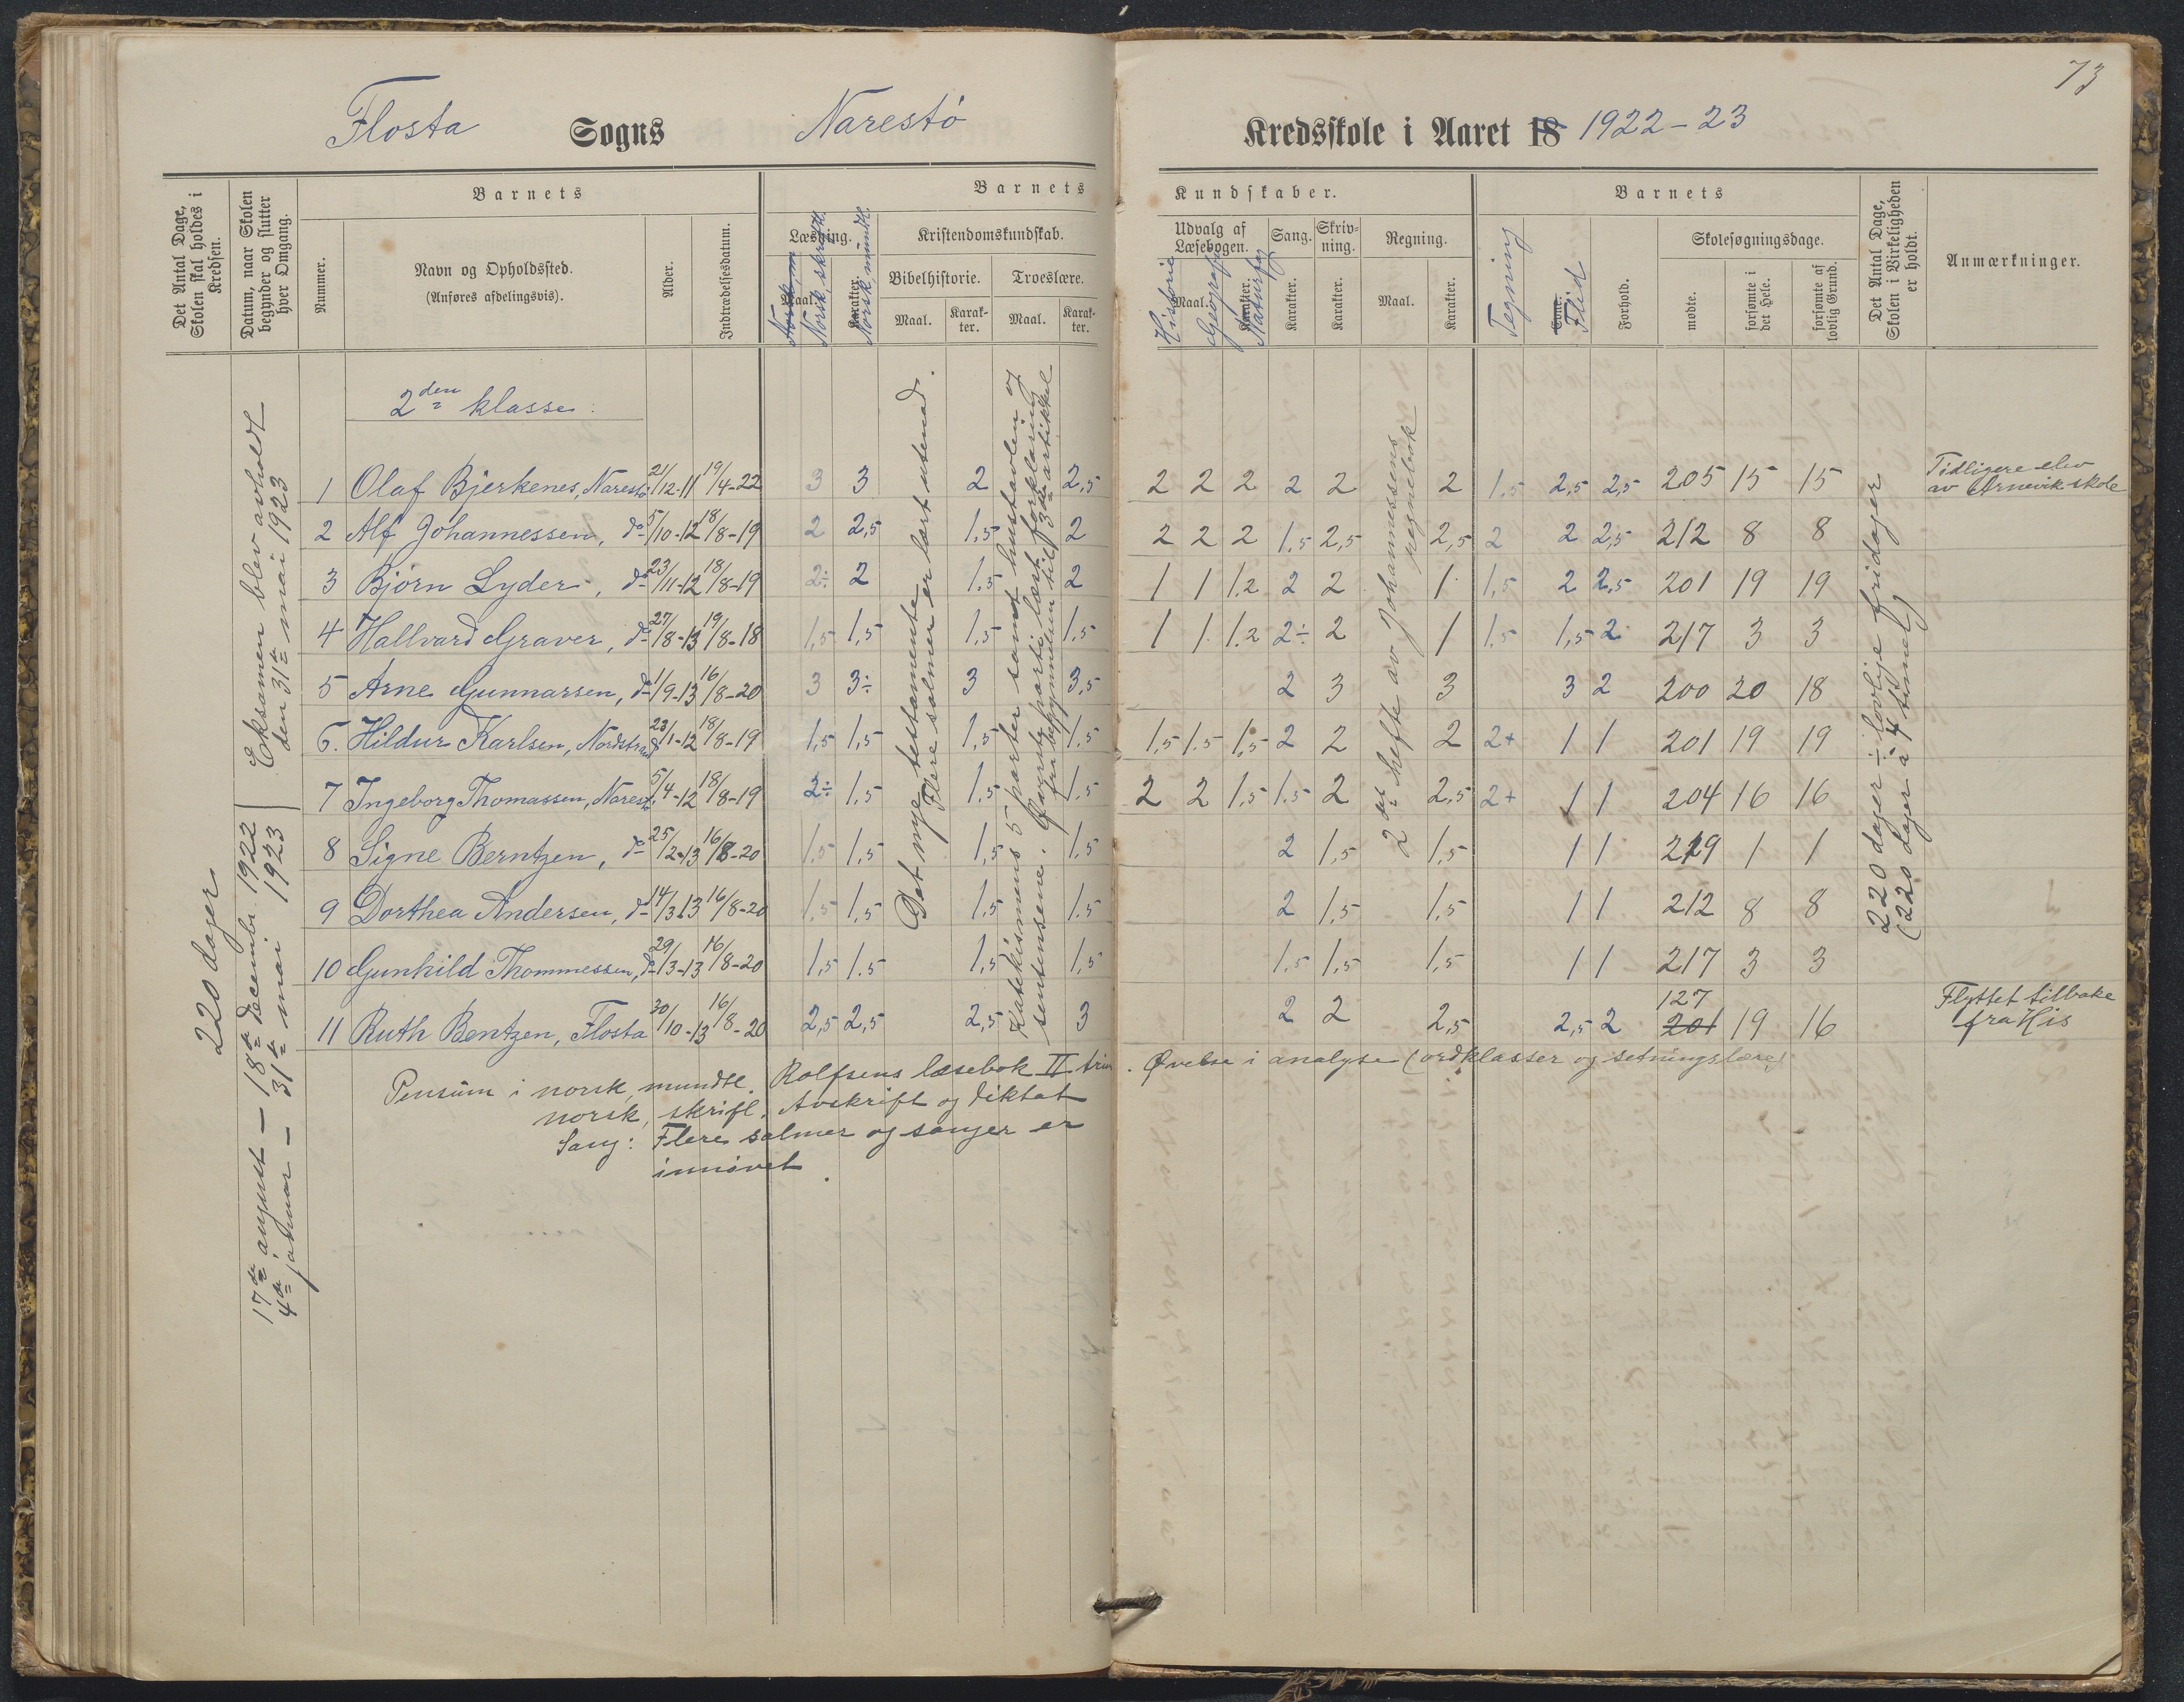 73
Flosta Sogns Narestö Kredsskole i Aaret 18 1922-23
Det Antal Dage, Skolen skal holdes i Kredsen.
Datum, naar Skolen begynder og slutter hver Omgang.
Barnets
Nummer.
Navn og Opholdssted.
(Anføres afdelingsvis).
Alder.
Indtrædelsesdatum.
Barnets Kundskaber.
Læsning.
Maal. Norsk, skriftl.
Karakter. Norsk, mundtl.
Kristendomskundskab.
Bibelhistorie. Troeslære.
Maal. Karakter. Maal. Karakter.
Udvalg af Læsebogen.
Maal. Karakter.
Historie Geografi Naturfag
Sang. Karakter.
Skrivning. Karakter.
Regning.
Maal. Karakter.
Barnets
Tegning
Evne. Flid
Forhold.
Skolesøgningsdage.
mødte. forsømte i det Hele. forsømte af lovlig Grund.
Det Antal Dage, Skolen i Virkeligheden er holdt.
Anmærkninger.
220 dager
17de august - 18de decembr. 1922
4de januar - 31te mai 1923
Eksamen blev avholdt
den 31te mai 1923
2den klasse:
1 Olaf Bjerkenes, Narestö 21/12-11 19/4-22 3 3 2 2,5 2 2 2 2 2 2 1,5 2,5 2,5 205 15 15 Tidligere elev av Arnevik skole
2 Alf Johannessen, do 5/10-12 18/8-19 2 2,5 1,5 2 2 2 2 1,5 2,5 2,5 2 2 2,5 212 8 8
3 Björn Lyder, do 23/11-12 18/8-19 2÷ 2 1,5 2 1 1 1.2 2 2 1 1,5 2 2,5 201 19 19
4 Hallvard Graver, do 27/8-13 19/8-18 1,5 1,5 1,5 1,5 1 1 1.2 2÷ 2 1 1,5 1,5 2 217 3 3
5 Arne Gunnarsen, do 1/9-13 16/8-20 3 3÷ 3 3,5 2 3 3 3 2 200 20 18
6. Hildur Karlsen, Nordstrand 23/1-12 18/8-19 1,5 1,5 1,5 1,5 1,5 1.5 1,5 2 2 2 2+ 1 1 201 19 19
7 Ingeborg Thomassen, Narest. 5/4-12 18/8-19 2÷ 1,5 1,5 1,5 2 2 1,5 1.5 2 2,5 2+ 1 1 204 16 16
8 Signe Berntzen, do 25/2-13 16/8-20 1,5 1,5 1,5 1,5 2 1,5 1,5 1 1 219 1 1
9 Dorthea Andersen, do 14/3-13 16/8-20 1,5 1,5 1,5 1,5 2 1,5 1,5 1 1 212 8 8
10 Gunhild Thommessen, do 29/3-13 16/8-20 1,5 1.5 1,5 1,5 1,5 1,5 1,5 1 1 217 3 3
11 Ruth Bentzen, Flosta 30/10-13 16/8-20 2,5 2,5 2,5 3 2 2 2,5 2,5 2 127 201 19 16 Flyttet tilbake fra His
Det nye testamente
Flere salmer er lært utenad.
Katekismens 5 parter samt hustavlen og
sentensene. Øvrigste parti lært forklaring
fra begynnelsen til 3die artikkel
2det hefte av Johannessens
regnebok
220 dager ÷ lovlige fridager
(220 dager à 4 timer)
Pensum i norsk, mundtl. Rolfsens læsebok II trin. Øvelse i analyse (ordklasser og setningslære)
norsk, skriftl. Avskrift og diktat
Sang: Flere salmer og sanger er
innövet.